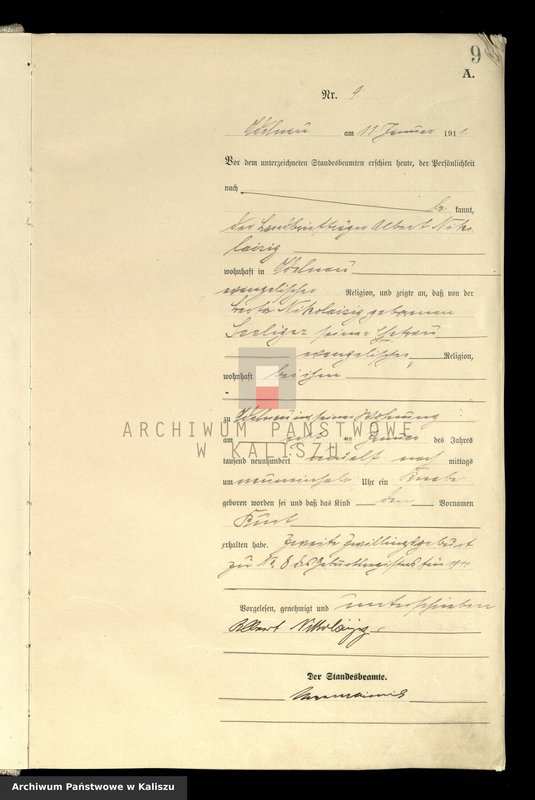 9
A.
Nr. 9.
Adelnau am 11 Januar 1911.
Vor dem unterzeichneten Standesbeamten erschien heute, der Persönlichkeit
nach
be kannt,
der Landbriefträger Albert Niko
laizig
wohnhaft in Adelnau
evangelischer Religion, und zeigte an, daß von der
Nikolaizig geborenen
Seeliger seiner Ehefrau
evangelischer Religion,
wohnhaft bei ihm
zu Adelnau in seiner Wohnung
am Januar des Jahres
tausend neunhundert nach mittags
um Uhr ein Knabe
geboren worden sei und daß das Kind den Vornamen
Kurt
erhalten habe. Zweite Zwillingsgeburt
zu No 8 des Geburtsregisters
Vorgelesen, genehmigt und unterschrieben
Albert Nikolaizig
Der Standesbeamte.
ARCHIWUM PAŃSTWOWE
W KALISZU
Archiwum Państwowe w Kaliszu